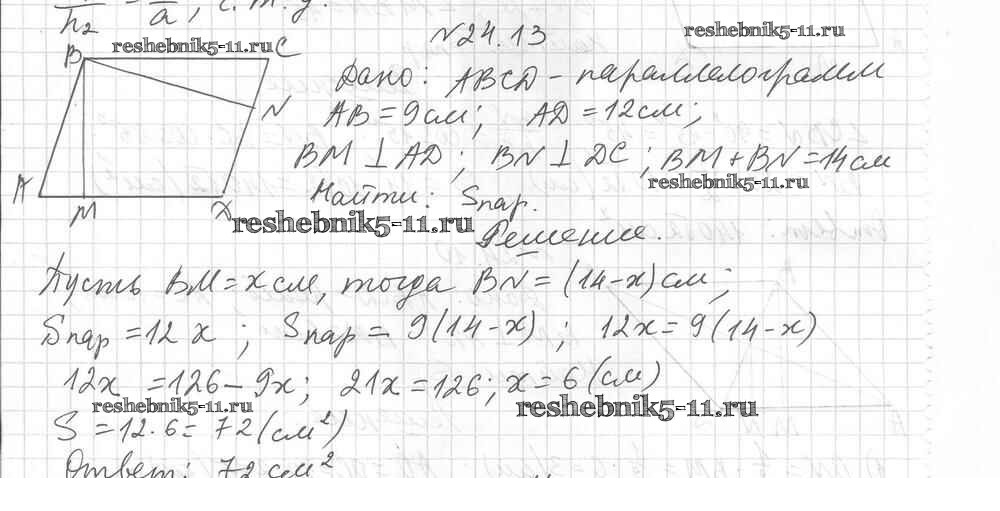 h₂ a, ч.т.д.
reshebnik5-11.ru
reshebnik5-11.ru
№24.13
B C
N
A M D
Дано: ABCD - параллелограмм
AB = 9 см; AD = 12 см;
BM ⊥ AD; BN ⊥ DC; BM + BN = 14 см
reshebnik5-11.ru
Найти: Sпар.
reshebnik5-11.ru
Решение.
Пусть BM = x см, тогда BN = (14-x) см;
Sпар = 12x; Sпар = 9(14-x); 12x = 9(14-x)
12x = 126 - 9x; 21x = 126; x = 6 (см)
reshebnik5-11.ru
reshebnik5-11.ru
S = 12·6 = 72 (см²)
Ответ: 72 см²